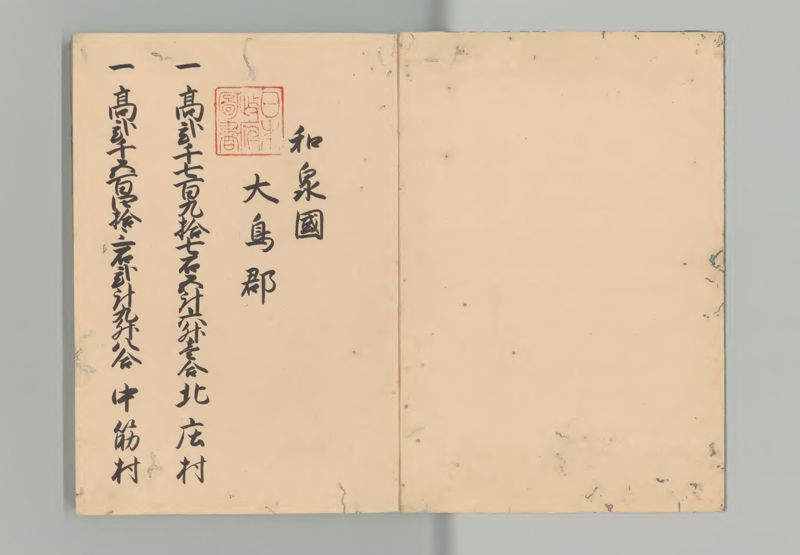 和泉國
日本
政府
圖書
大鳥郡
一髙弐千七百九拾七石五斗六升壱合 北庄村
一髙弐千五百四拾三石弐斗九升八合 中筋村